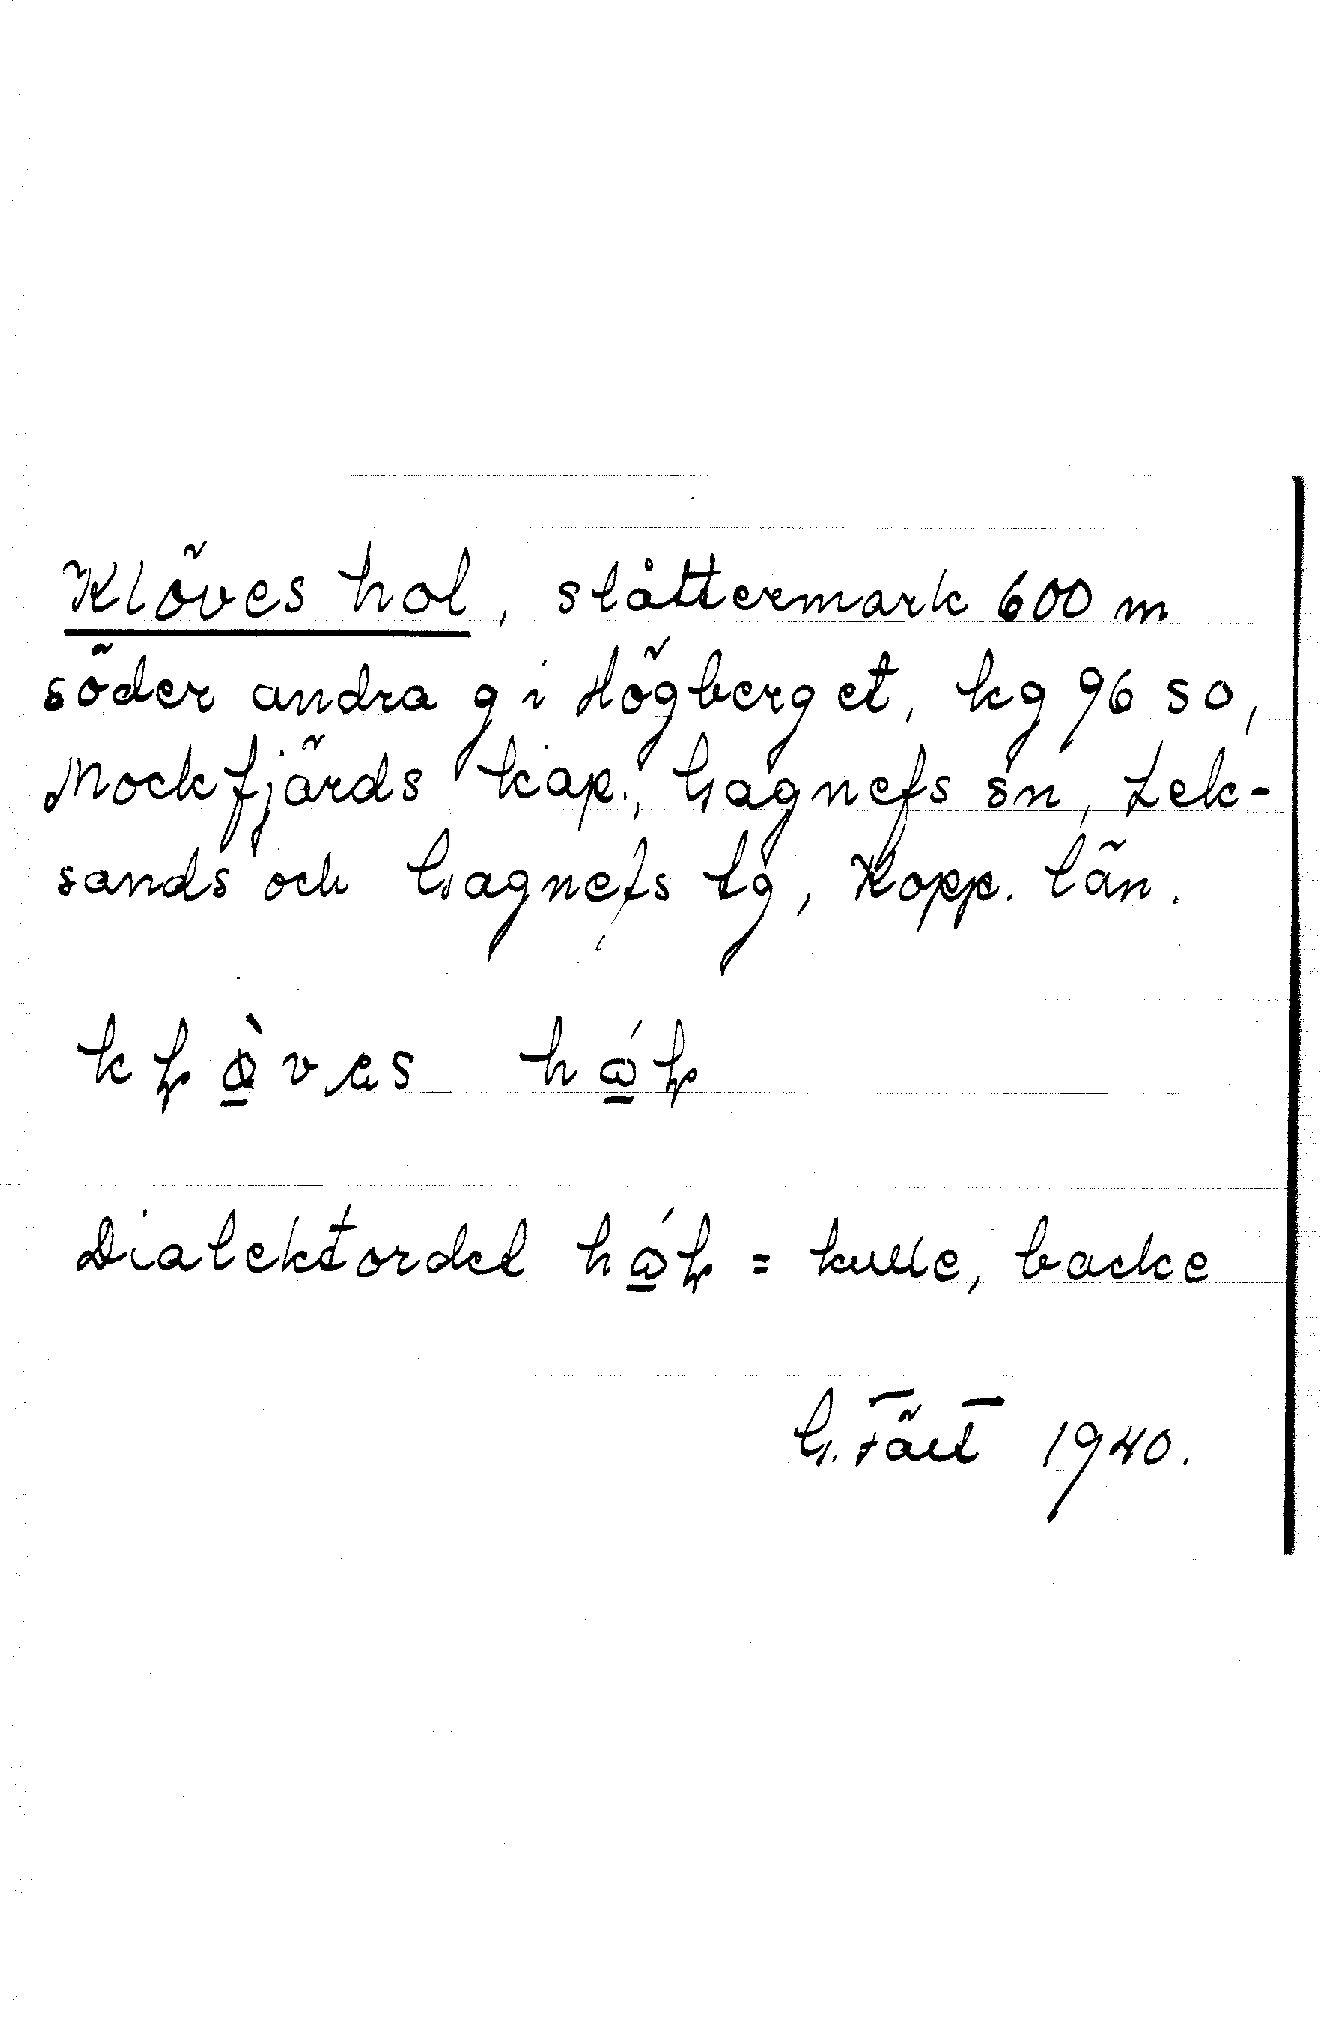 Klöves hol, slåttermark 600 m
söder andra g i Högberget, kg 96 SO,
Mockfjärds kap., Gagnefs sn, Lek-
sands och Gagnefs tg, Kopp. län.
Dialektordet = kulle, backe
G. Fält 1940.